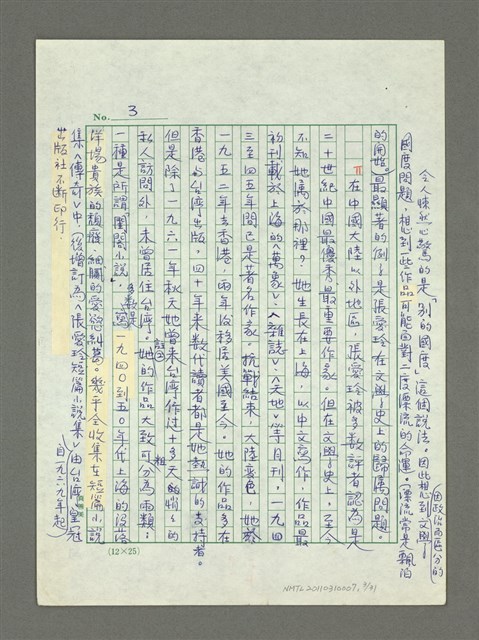 No. 3
令人悚然心驚的是「別的國度」這個說法。因此想到文學上
因政治而區分的
國度問題，想到此些作品可能面對二度漂流的命運。（漂流常是飄泊
的開始。最顯著的例子是張愛玲在文學史上的歸屬問題。
II 在中國大陸以外地區，張愛玲被多數評者認為是
二十世紀中國最優秀、最重要作家。但在文學史上，至今
不知她屬於那裡？她生長在上海，以中文寫作，作品最
初刊載於上海的〈萬象〉、〈雜誌〉、〈天地〉等月刊。一九四
三至四五年間已是著名作家。抗戰結束，大陸變色，她於
一九五二年去香港，兩年後移居美國至今。她的作品多在
香港與台灣出版，四十年來數代讀者都是她熱誠的支持者。
但是除了一九六一年秋天她曾來台灣作過十多天的悄悄的
私人訪問外，未曾居住台灣。她的作品大致可分為兩類：
一種是所謂「閨閣小說」，多數是寫一九四０到五０年代上海的沒落
洋場貴族的頹廢、細膩的愛慾糾葛。幾乎全收集在短篇小說
集〈傳奇〉中（後增訂為〈張愛玲短篇小說集〉由台灣皇冠
自一九六九年起
出版社不斷印行．
(12×25)
NMTL20110310007,